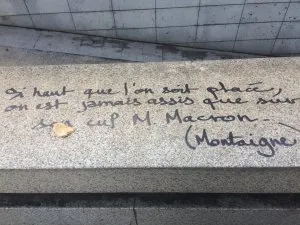 Si haut que l'on soit placé,
on est jamais assis que sur
son cul M. Macron.
(Montaigne